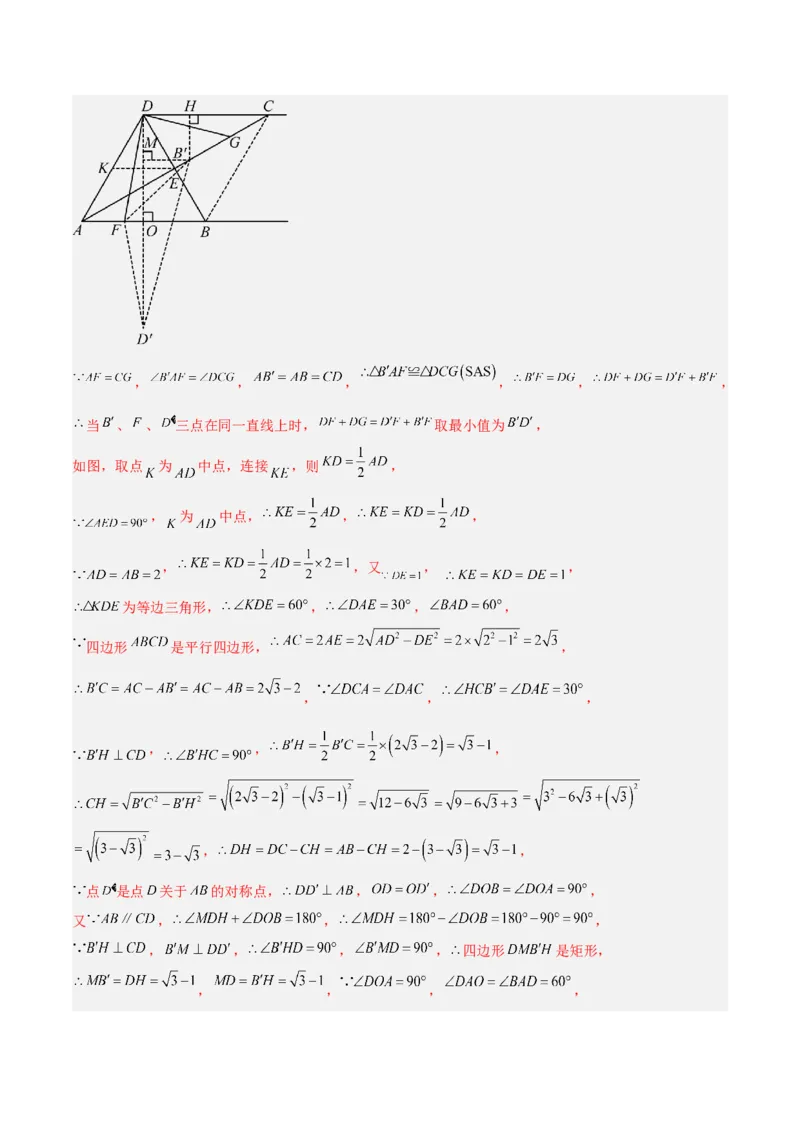 D H C
M G
B′
K
E
A F O B
D′
∵AF=CG，∠B′AF=∠DCG，AB′=AB=CD，∴△B′AF≌△DCG(SAS)，∴B′F=DG，∴DF+DG=D′F+B′F，
∴当B′、F、D′三点在同一直线上时，DF+DG=D′F+B′F取最小值为B′D′，
如图，取点K为AD中点，连接KE，则KD=1/2 AD，
∵∠AED=90°，K为AD中点，∴KE=1/2 AD，∴KE=KD=1/2 AD，
∵AD=AB=2，∴KE=KD=1/2 AD=1/2×2=1，又∵DE=1，∴KE=KD=DE=1，
∴△KDE为等边三角形，∴∠KDE=60°，∴∠DAE=30°，∠BAD=60°，
∵四边形ABCD是平行四边形，∴AC=2AE=2√(AD²−DE²)=2×√(2²−1²)=2√3，
∴B′C=AC−AB′=AC−AB=2√3−2，∵∠DCA=∠DAC，∴∠HCB′=∠DAE=30°，
∵B′H⊥CD，∴∠B′HC=90°，∴B′H=1/2 B′C=1/2×(2√3−2)=√3−1，
∴CH=√(B′C²−B′H²)=√((2√3−2)²−(√3−1)²)=√(12−6√3)=√(9−6√3+3)=√(3²−6√3+(√3)²)
=√((3−√3)²)=3−√3，∴DH=DC−CH=AB−CH=2−(3−√3)=√3−1，
∵点D′是点D关于AB的对称点，∴DD′⊥AB，OD=OD′，∴∠DOB=∠DOA=90°，
又∵AB∥CD，∴∠MDH+∠DOB=180°，∴∠MDH=180°−∠DOB=180°−90°=90°，
∵B′H⊥CD，B′M⊥DD′，∴∠B′HD=90°，∠B′MD=90°，∴四边形DMB′H是矩形，
∴MB′=DH=√3−1，MD=B′H=√3−1，∵∠DOA=90°，∠DAO=∠BAD=60°，